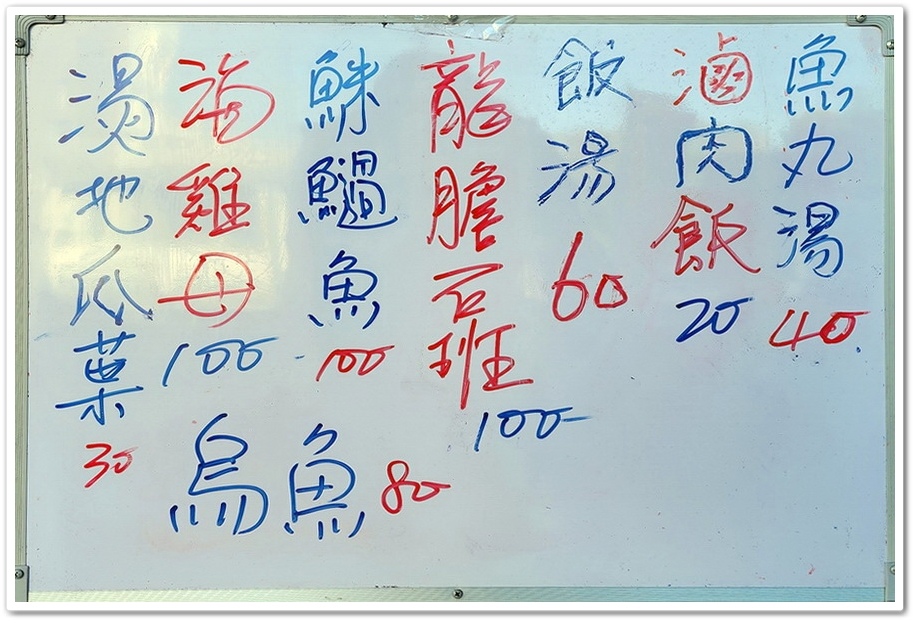 魚丸湯 40
滷肉飯 20
飯湯 60
龍膽石班 100
魚 100
海雞母 100
湯地瓜葉 30
烏魚 80